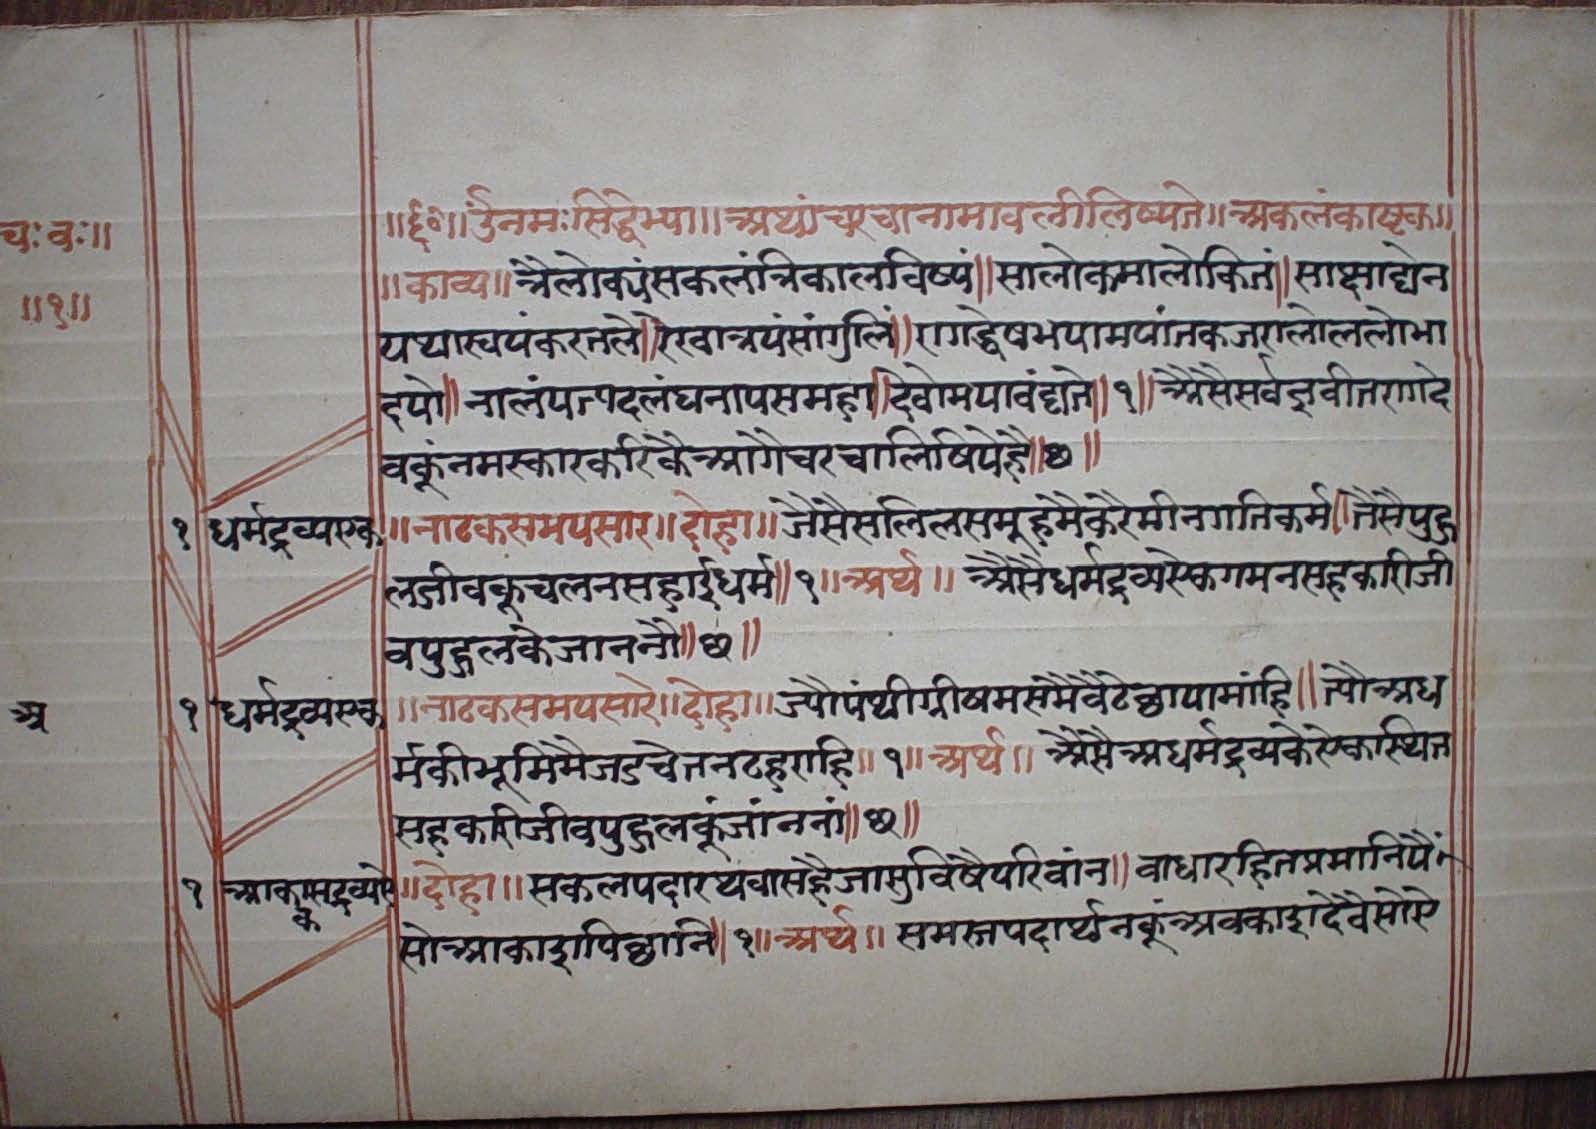 चः वः॥
॥१॥
॥६०॥ ॐनमःसिद्धेभ्यः॥ अथ चरचानामावलीलिष्यते॥ अकलंकाष्टक॥
॥काव्य॥ त्रैलोक्यंसकलंत्रिकालविषयं॥सालोकमालोकितं॥साक्षाद्येन
यथास्वयंकरतले॥रेखात्रयंसांगुलिं॥रागद्वेषभयामयांतकजरालोलत्लोभा
दयो॥ नालंयत्पदलंघनायसमहा॥देवोमयावंद्यते॥१॥ अैसैसर्वज्ञवीतरागदे
वकूंनमस्कारकरिकैआगैचरचालिषियेहै॥छ॥
१ धर्मद्रव्यएक ॥नाटकसमयसार॥दोहा॥ जैसैसलिलसमूहमैकरैमीनगतिकर्म॥तैसैपुद्ग
लजीवकूचलनसहाईधर्म॥१॥अर्थ॥ अैसैधर्मद्रव्यएकगमनसहकारीजी
वपुद्गलकेजाननौ॥छ॥
अ १ धर्मद्रव्यएक ॥नाटकसमयसारे॥दोहा॥ ज्यौपंथीग्रीषमसमैवैठैछायामांहि॥ त्यौअध
र्मकीभूमिमैजडचेतनठहराहि॥१॥अर्थ॥ अैसैअधर्मद्रव्यकेएकस्थित
सहकारीजीवपुद्गलकूंजांननां॥छ॥
१ आकासद्रव्यऐक ॥दोहा॥ सकलपदारथवासहैजासुविषैपरिवांन॥ वाधारहितप्रमानियै
सोआकाशपिछानि॥१॥अर्थ॥ समस्तपदार्थनकूंअवकाशदेवैसोए